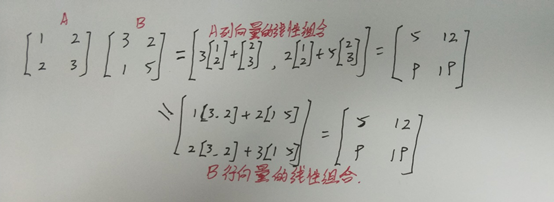 A B
[1 2; 2 3] [3 2; 1 5] = [3[1; 2] + [2; 3], 2[1; 2] + 5[2; 3]] = [5 12; 9 19]
A列向量的线性组合
= [1[3 2] + 2[1 5]; 2[3 2] + 3[1 5]] = [5 12; 9 19]
B行向量的线性组合.